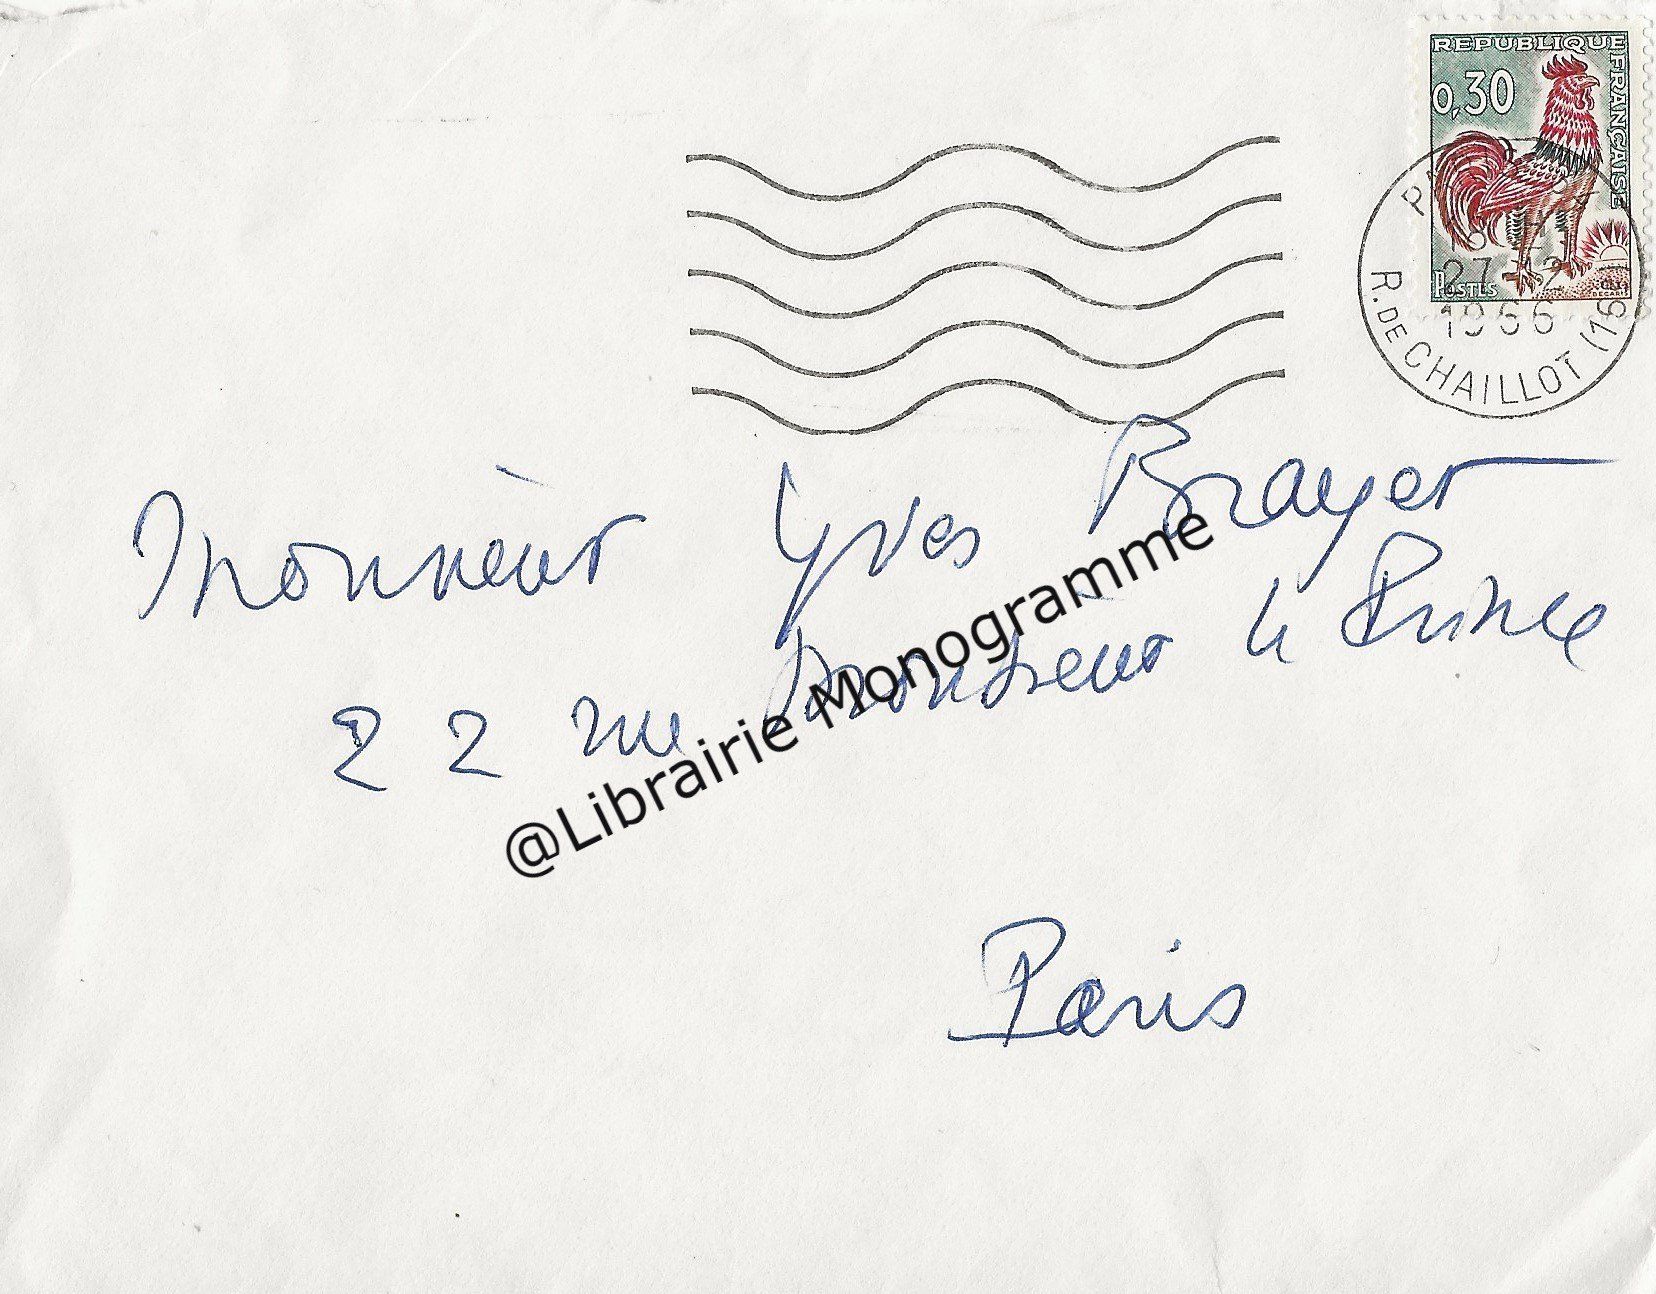 REPUBLIQUE FRANÇAISE
0,30
POSTES
27-12
1966
R. DE CHAILLOT (16
Monsieur Yves Brayer
22 rue Monsieur le Prince
Paris
@Librairie Monogramme